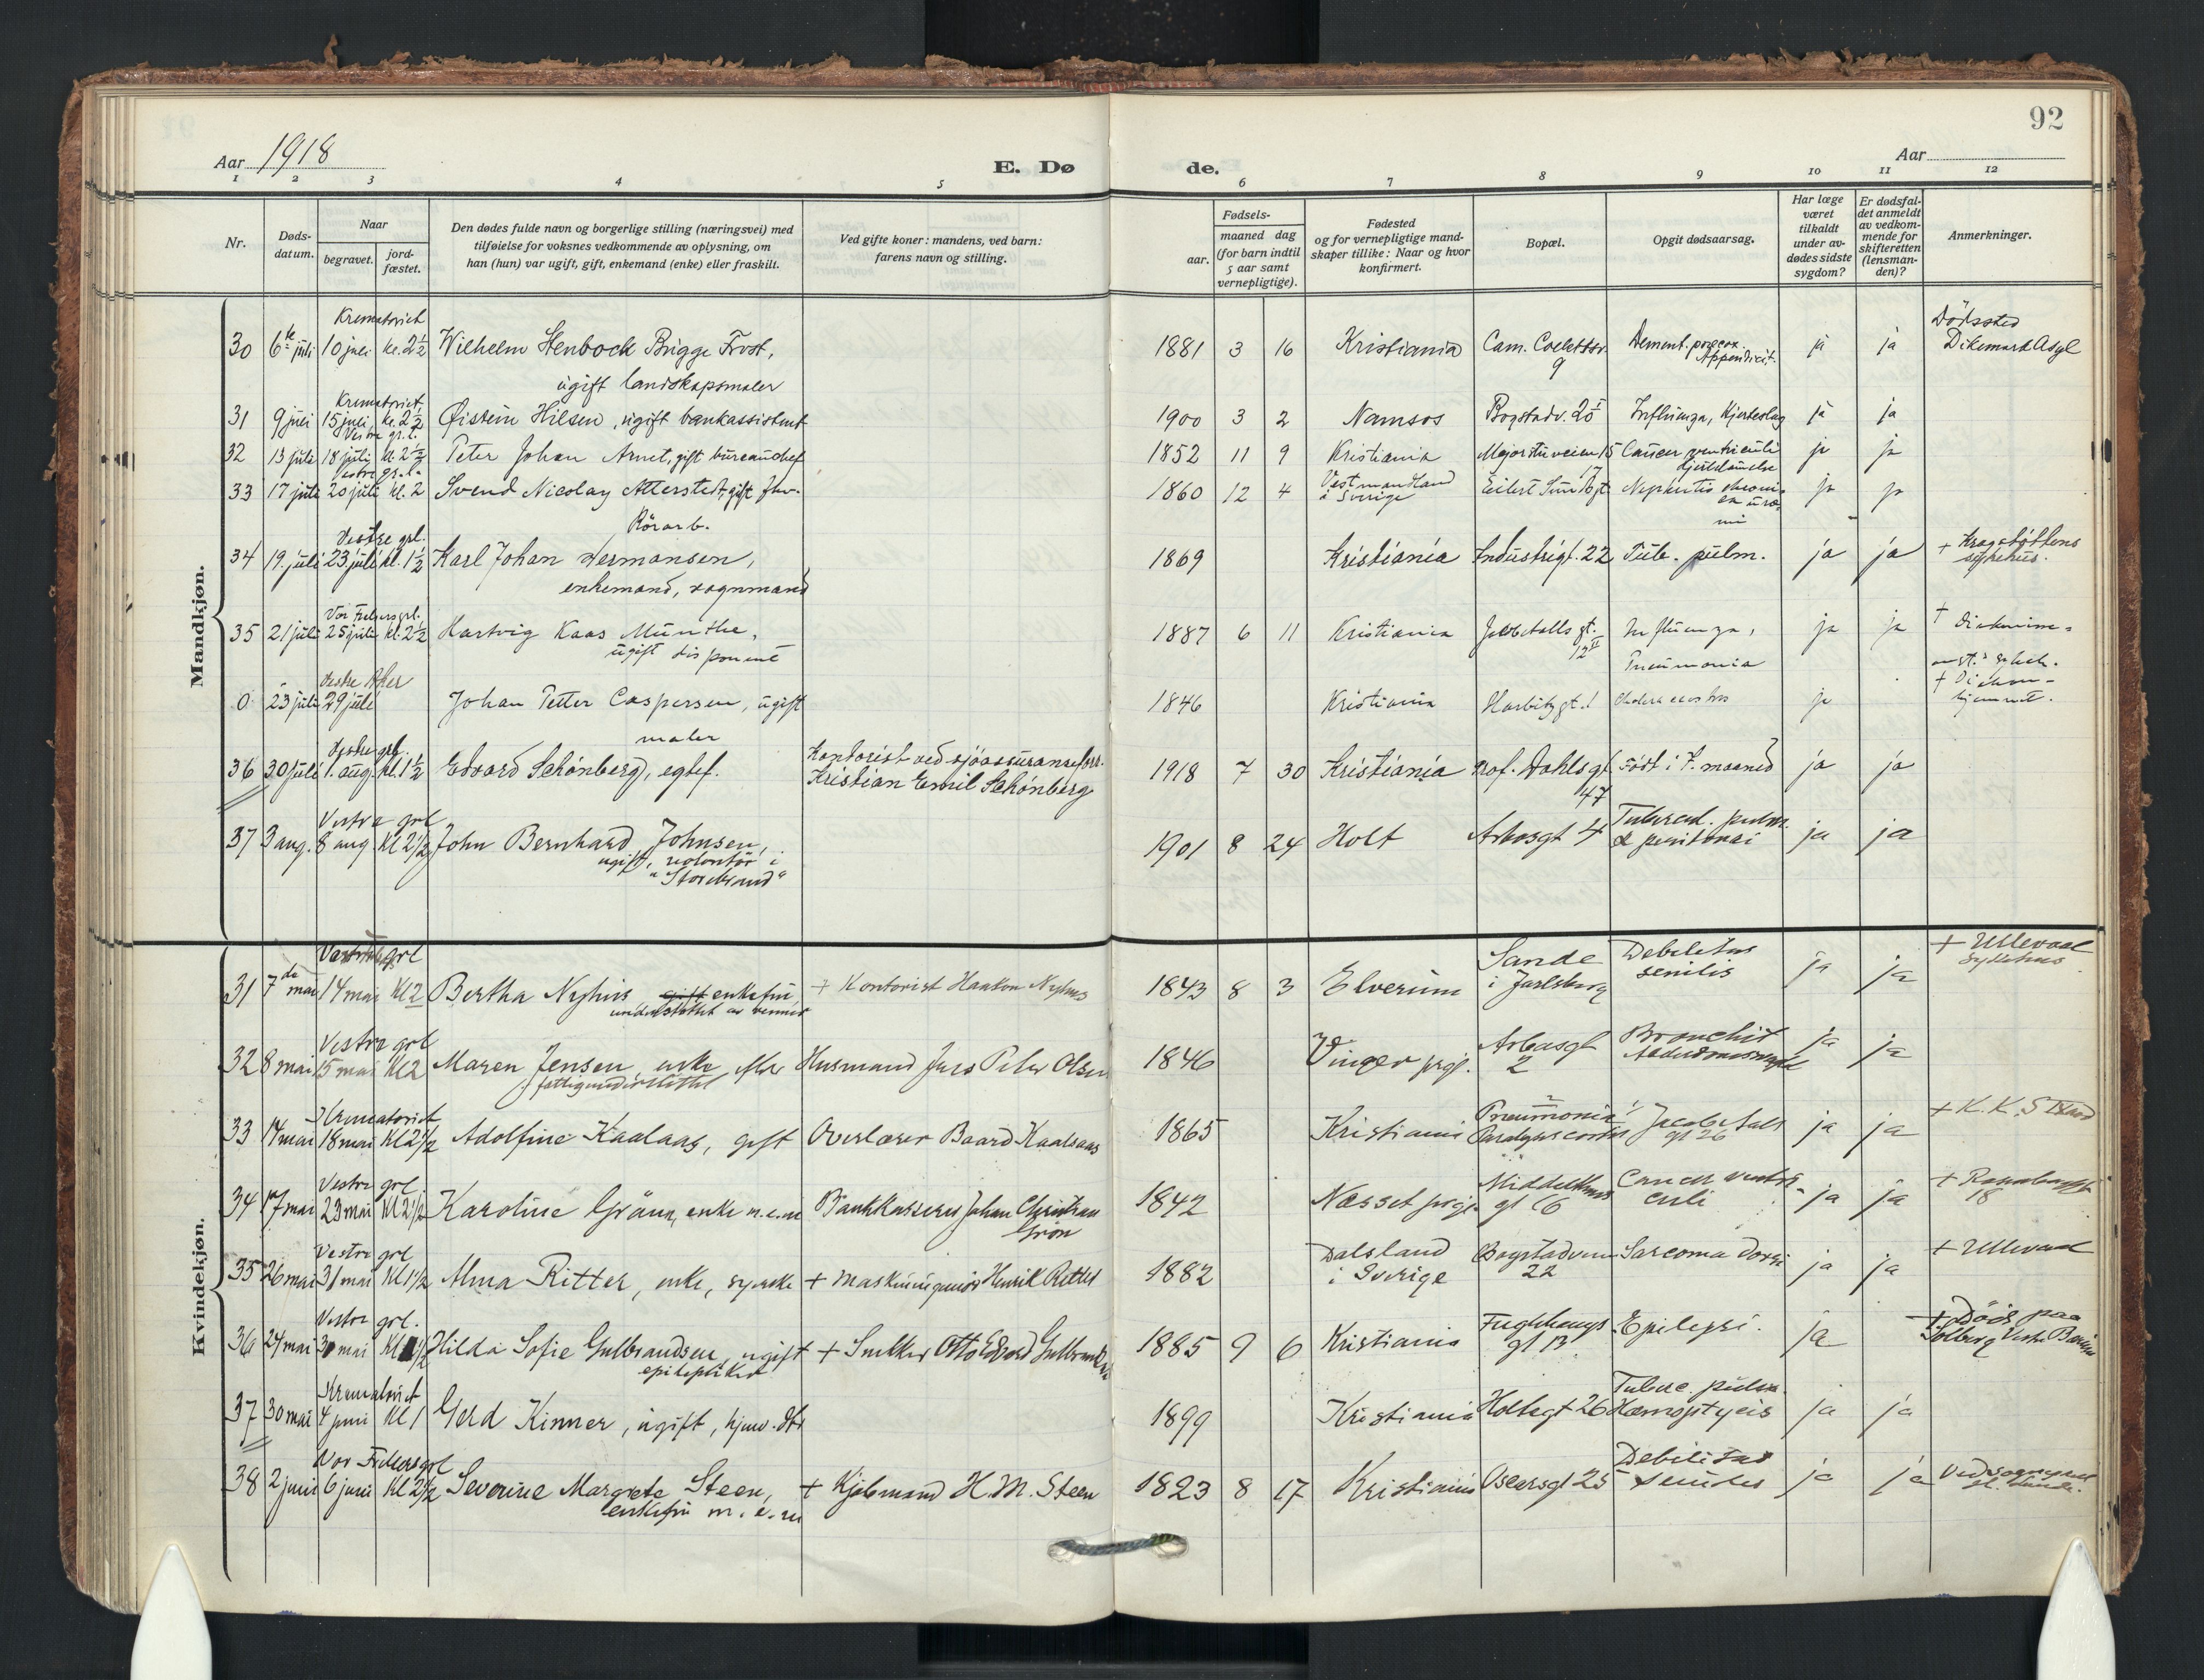 92
Aar 1918
E. Dø de.
Aar
1 2 3 4 5 6 7 8 9 10 11 12
Nr.
Døds-
datum.
Naar
begravet.
jord-
fæstet.
Den dødes fulde navn og borgerlige stilling (næringsvei) med
tilføielse for voksnes vedkommende av oplysning, om
han (hun) var ugift, gift, enkemand (enke) eller fraskilt.
Ved gifte koner: mandens, ved barn:
farens navn og stilling.
Fødsels-
aar.
maaned dag
(for barn indtil
5 aar samt
vernepligtige).
Fødested
og for vernepligtige mand-
skaper tillike: Naar og hvor
konfirmert.
Bopæl.
Opgit dødsaarsag.
Har læge
været
tilkaldt
under av-
dødes sidste
sygdom?
Er dødsfal-
det anmeldt
av vedkom-
mende for
skifteretten
(lensman-
den)?
Anmerkninger.
Mandkjøn.
Krematoriet Dödssted
30 6te juli 10 juli kl. 2½ Wilhelm Stenbock Brigge Frost, 1881 3 16 Kristiania Cam. Collettsv. Dement. præcox. ja ja Dikemark Asyl
ugift landskapsmaler 9 Appendicit.
Krematoriet
31 9 juli 15 juli kl. 2½ Øistein Hilsen, ugift bankassistent 1900 3 2 Namsos Bogstadv. 25 Influenza, Hjerteslag ja ja
Vestre gr.l.
32 13 juli 18 juli kl. 2½ Peter Johan Arnet, gift bureauchef 1852 11 9 Kristiania Majorstuveien 15 Cancer ventriculi ja ja
Vestre gr.l.
33 17 juli 20 juli kl. 2 Svend Nicolay Atterstedt, gift 1860 12 4 Vestmanland i Sverige Eilert Sundtsgt 17 Nephritis ja ja
Rörarb.
Vestre grl.
34 19. juli 23. juli kl. 1½ Karl Johan Hermansen, 1869 Kristiania Industrigt. 22 Tub. pulm. ja ja + Krogstøttens
enkemand, vognmand sykehus.
Vor Frelsers grl.
35 21 juli 25 juli kl. 2½ Hartvig Kaas Munthe, 1887 6 11 Kristiania Jacob Aalls gt. Influenza, ja ja †
ugift disponent 12 II Pneumonia
Vestre Aker
0 23 juli 29 juli Johan Petter Caspersen, ugift 1846 Kristiania Harbitzgt. 1 ja
maler
Vestre grl.
36 30 juli 1. aug. kl. 1½ Edvard Schönberg, egtef. Kontorist ved sjöassuranseforr. 1918 7 30 Kristiania Prof. Dahls gt. Födt i 7. maaned ja ja
Kristian Emil Schönberg 47
Vestre grl
37 3 aug. 8 aug. Kl 2½ John Bernhard Johnsen, 1901 8 24 Holt Arbosgt 4 Tubercul. pulm. ja ja
ugift, volontör i & peritonei
"Storebrand"
Kvindekjøn.
Vestre grl
31 7de mai 14 mai Kl 2 Bertha Nyhus gift enkefru, + Kontorist Haakon Nyhus 1843 8 3 Elverum Sande Debilitas ja ja + Ullevaal
understöttet av venner i Jarlsberg senilis Sykehus
Vestre grl
32 8 mai 15 mai Kl 2 Maren Jensen, enke efter Husmand Jens Peter Olsen 1846 Vinger prgj. Arbosgt Bronchit ja ja
fattigunderstöttet 2
Krematoriet
33 14 mai 18 mai Kl 2½ Adolfine Kaalaas, gift Overlærer Baard Kaalaas 1865 Kristiania Pneumonia Jacob Aals ja ja + K. K.
Paralysis cordis gt 26
Vestre grl.
34 17 mai 23 mai Kl 2½ Karoline Grönn, enke u.e.m Bankkasserer Johan Christian 1842 Næsset prgj. Middelthuns Cancer ventri- ja ja +
Grön gt 16 culi 18
Vestre grl
35 26 mai 31 mai Kl 1½ Alma Ritter, enke, syerske + Maskiningeniör Henrik Ritter 1882 Dalsland Bogstadveien Sarcoma dorsi ja ja + Ullevaal
i Sverige 22
Vestre grl.
36 24 mai 30 mai Kl ½ Hilda Sofie Gulbrandsen, ugift + Snekker Otto Edvard Gulbrandsen 1885 9 6 Kristiania Fuglehaugs Epilepsi. ja + Döde paa
epileptiker gt 13. Solberg Vestre Bærum
Krematoriet
37 30 mai 4 juni Kl 1 Gerd Kinner, ugift, hjmv. dtr 1899 Kristiania Holtegt 26 Tuberc. pulm. ja ja
Hæmoptysis
Vor Frelsers grl
38 2 juni 6 juni Kl 2½ Severine Margrete Steen, + Kjöbmand H. M. Steen 1823 8 17 Kristiania Oscarsgt 25 Debilitas ja ja Ved sogneprest
enkefru m. e. m senilis gl. Lunde.